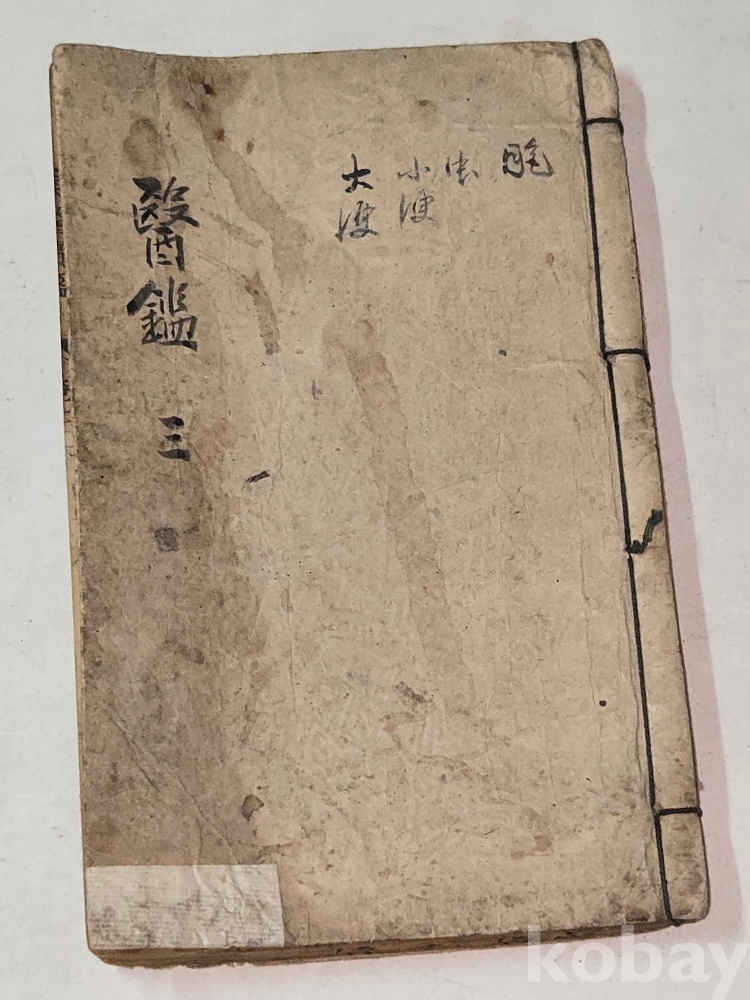 胞
虫
小便
大便
醫鑑 三
kobay